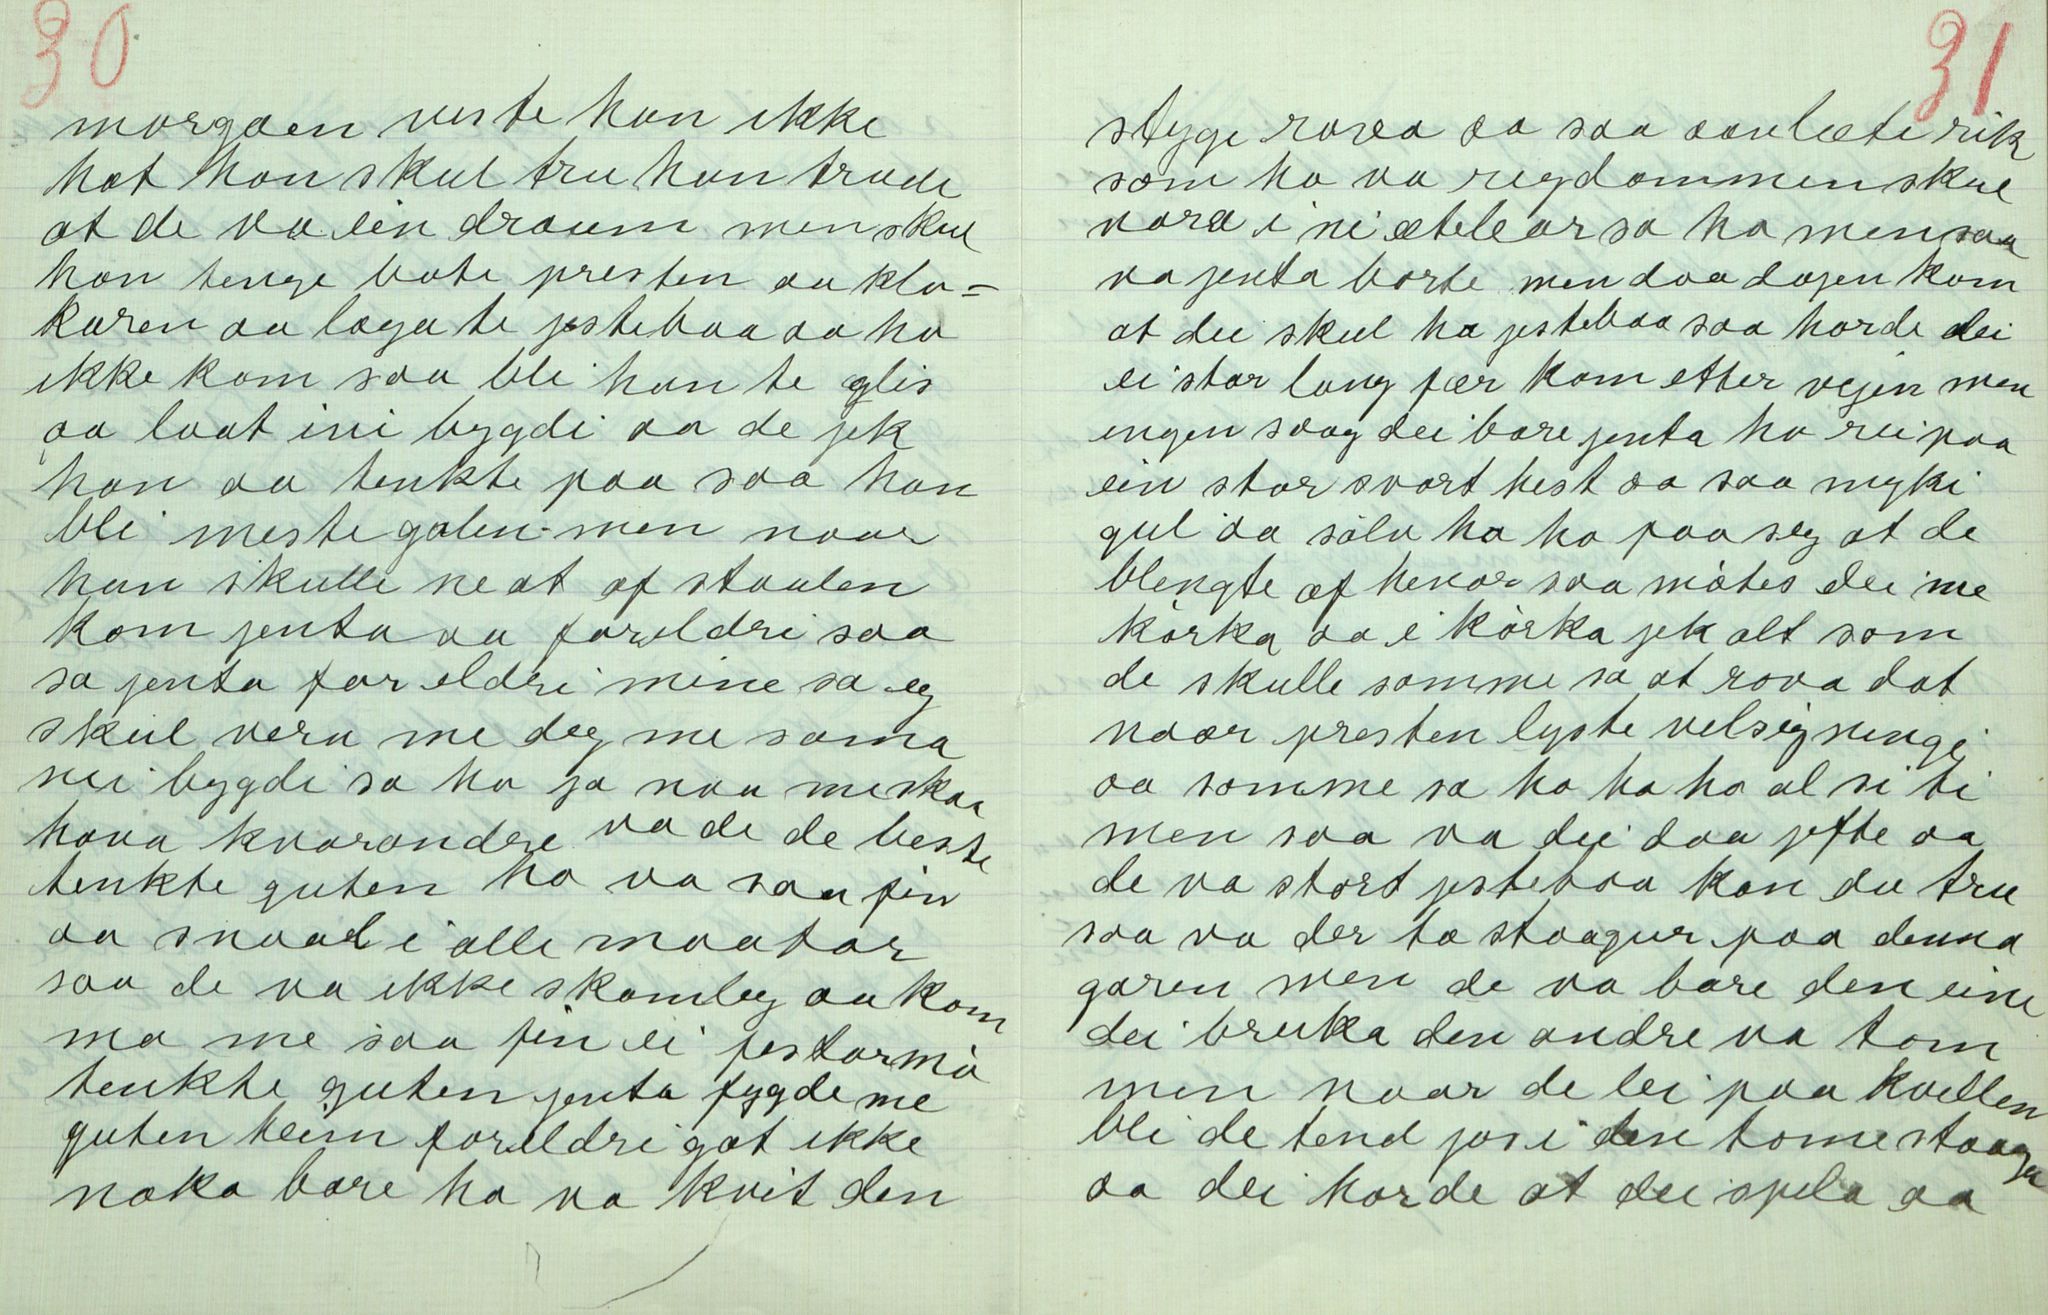 30
morgoen veste han ikke
hot hon skul tru han trude
at de va ein draum men skul
han tenge bote presten aa klo=
karen aa laga te jesteboa aa ho
ikke kom saa bli han te glis
aa laat ini bygdi aa de jek
han aa tenkte paa saa han
bli meste galen men naar
han skulle ne at af staulen
kom jenta aa foreldri saa
sa jenta foreldri mine sa eg
skul vera me deg me soma
nei bygdi sa ho ja naa me skaa
hava kvarandre va de de beste
tenkte guten ho va saa fin
aa snaal i alle maatar
saa de va ikke skamleg aa kom
ma me saa fin ei jestarmò
tenkte guten jenta fygde me
guten heim foreldri gat ikke
noko bare ho va kvit den
31
stygge rova aa saa aanlæte rik
som ho va regdommen skul
vora i ni ætelear sa ho men saa
va jenta borte men daa dagen kom
at dei skul ha jesteboa saa horde dei
ei stor lang fær kom etter vejen men
engen saag dei bare jenta ho rei paa
ein stor svart hest aa saa myki
gul aa sòlv ha ho paa seg at de
blengte af henar saa mòtes dei me
kòrka aa i kòrka jek alt som
de skulle somme sa at rova dat
naar presten lyste velsigningi
aa somme sa ho ha ho al si ti
men saa va dei daa jefte aa
de va stort jesteboa kan du tru
saa va der to staagur paa denna
garen men de va bare den eine
dei bruka den andre va tom
men naar de lei paa kvellen
bli de tend jos i den tome staagu
aa dei horde at dei spela aa